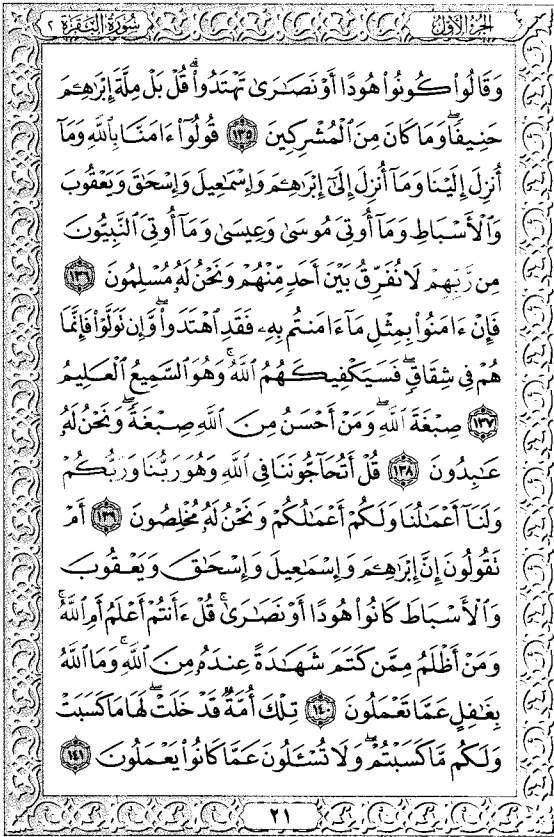 الجزء الأول
سورة البقرة ٢
وَقَالُوا۟ كُونُوا۟ هُودًا أَوْ نَصَـٰرَىٰ تَهْتَدُوا۟ ۗ قُلْ بَلْ مِلَّةَ إِبْرَٰهِـۧمَ
حَنِيفًا ۖ وَمَا كَانَ مِنَ ٱلْمُشْرِكِينَ ١٣٥ قُولُوٓا۟ ءَامَنَّا بِٱللَّهِ وَمَآ
أُنزِلَ إِلَيْنَا وَمَآ أُنزِلَ إِلَىٰٓ إِبْرَٰهِـۧمَ وَإِسْمَـٰعِيلَ وَإِسْحَـٰقَ وَيَعْقُوبَ
وَٱلْأَسْبَاطِ وَمَآ أُوتِىَ مُوسَىٰ وَعِيسَىٰ وَمَآ أُوتِىَ ٱلنَّبِيُّونَ
مِن رَّبِّهِمْ لَا نُفَرِّقُ بَيْنَ أَحَدٍ مِّنْهُمْ وَنَحْنُ لَهُۥ مُسْلِمُونَ ١٣٦
فَإِنْ ءَامَنُوا۟ بِمِثْلِ مَآ ءَامَنتُم بِهِۦ فَقَدِ ٱهْتَدَوا۟ ۖ وَّإِن نَوَلَّوْا۟ فَإِنَّمَا
هُمْ فِى شِقَاقٍ ۖ فَسَيَكْفِيكَهُمُ ٱللَّهُ ۚ وَهُوَ ٱلسَّمِيعُ ٱلْعَلِيمُ
١٣٧ صِبْغَةَ ٱللَّهِ ۖ وَمَنْ أَحْسَنُ مِنَ ٱللَّهِ صِبْغَةً ۖ وَنَحْنُ لَهُۥ
عَـٰبِدُونَ ١٣٨ قُلْ أَتُحَآجُّونَنَا فِى ٱللَّهِ وَهُوَ رَبُّنَا وَرَبُّكُمْ
وَلَنَآ أَعْمَـٰلُنَا وَلَكُمْ أَعْمَـٰلُكُمْ وَنَحْنُ لَهُۥ مُخْلِصُونَ ١٣٩ أَمْ
نَقُولُونَ إِنَّ إِبْرَٰهِـۧمَ وَإِسْمَـٰعِيلَ وَإِسْحَـٰقَ وَيَعْقُوبَ
وَٱلْأَسْبَاطَ كَانُوا۟ هُودًا أَوْ نَصَـٰرَىٰ ۗ قُلْ ءَأَنتُمْ أَعْلَمُ أَمِ ٱللَّهُ ۗ
وَمَنْ أَظْلَمُ مِمَّن كَتَمَ شَهَـٰدَةً عِندَهُۥ مِنَ ٱللَّهِ ۗ وَمَا ٱللَّهُ
بِغَـٰفِلٍ عَمَّا تَعْمَلُونَ ١٤٠ تِلْكَ أُمَّةٌ قَدْ خَلَتْ ۖ لَهَا مَا كَسَبَتْ
وَلَكُم مَّا كَسَبْتُمْ ۖ وَلَا تُسْـَٔلُونَ عَمَّا كَانُوا۟ يَعْمَلُونَ ١٤١
٢١